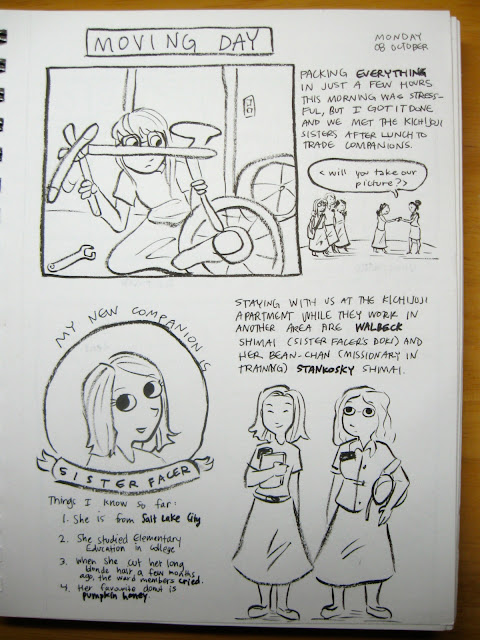 MOVING DAY
MONDAY
08 OCTOBER
PACKING EVERYTHING
IN JUST A FEW HOURS
THIS MORNING WAS STRESS-
FUL, BUT I GOT IT DONE
AND WE MET THE KICHIJOJI
SISTERS AFTER LUNCH TO
TRADE COMPANIONS.
<will you take our
picture?>
STAYING WITH US AT THE KICHIJOJI
APARTMENT WHILE THEY WORK IN
ANOTHER AREA ARE WALBECK
SHIMAI (SISTER FACER'S DOKI) AND
HER BEAN-CHAN (MISSIONARY IN
TRAINING) STANKOSKY SHIMAI.
MY NEW COMPANION IS
SISTER FACER
Things I know so far:
1. She is from Salt Lake City
2. She studied Elementary
Education in college
3. When she cut her long
blonde hair a few months
ago, the ward members cried.
4. Her favourite donut is
pumpkin honey.